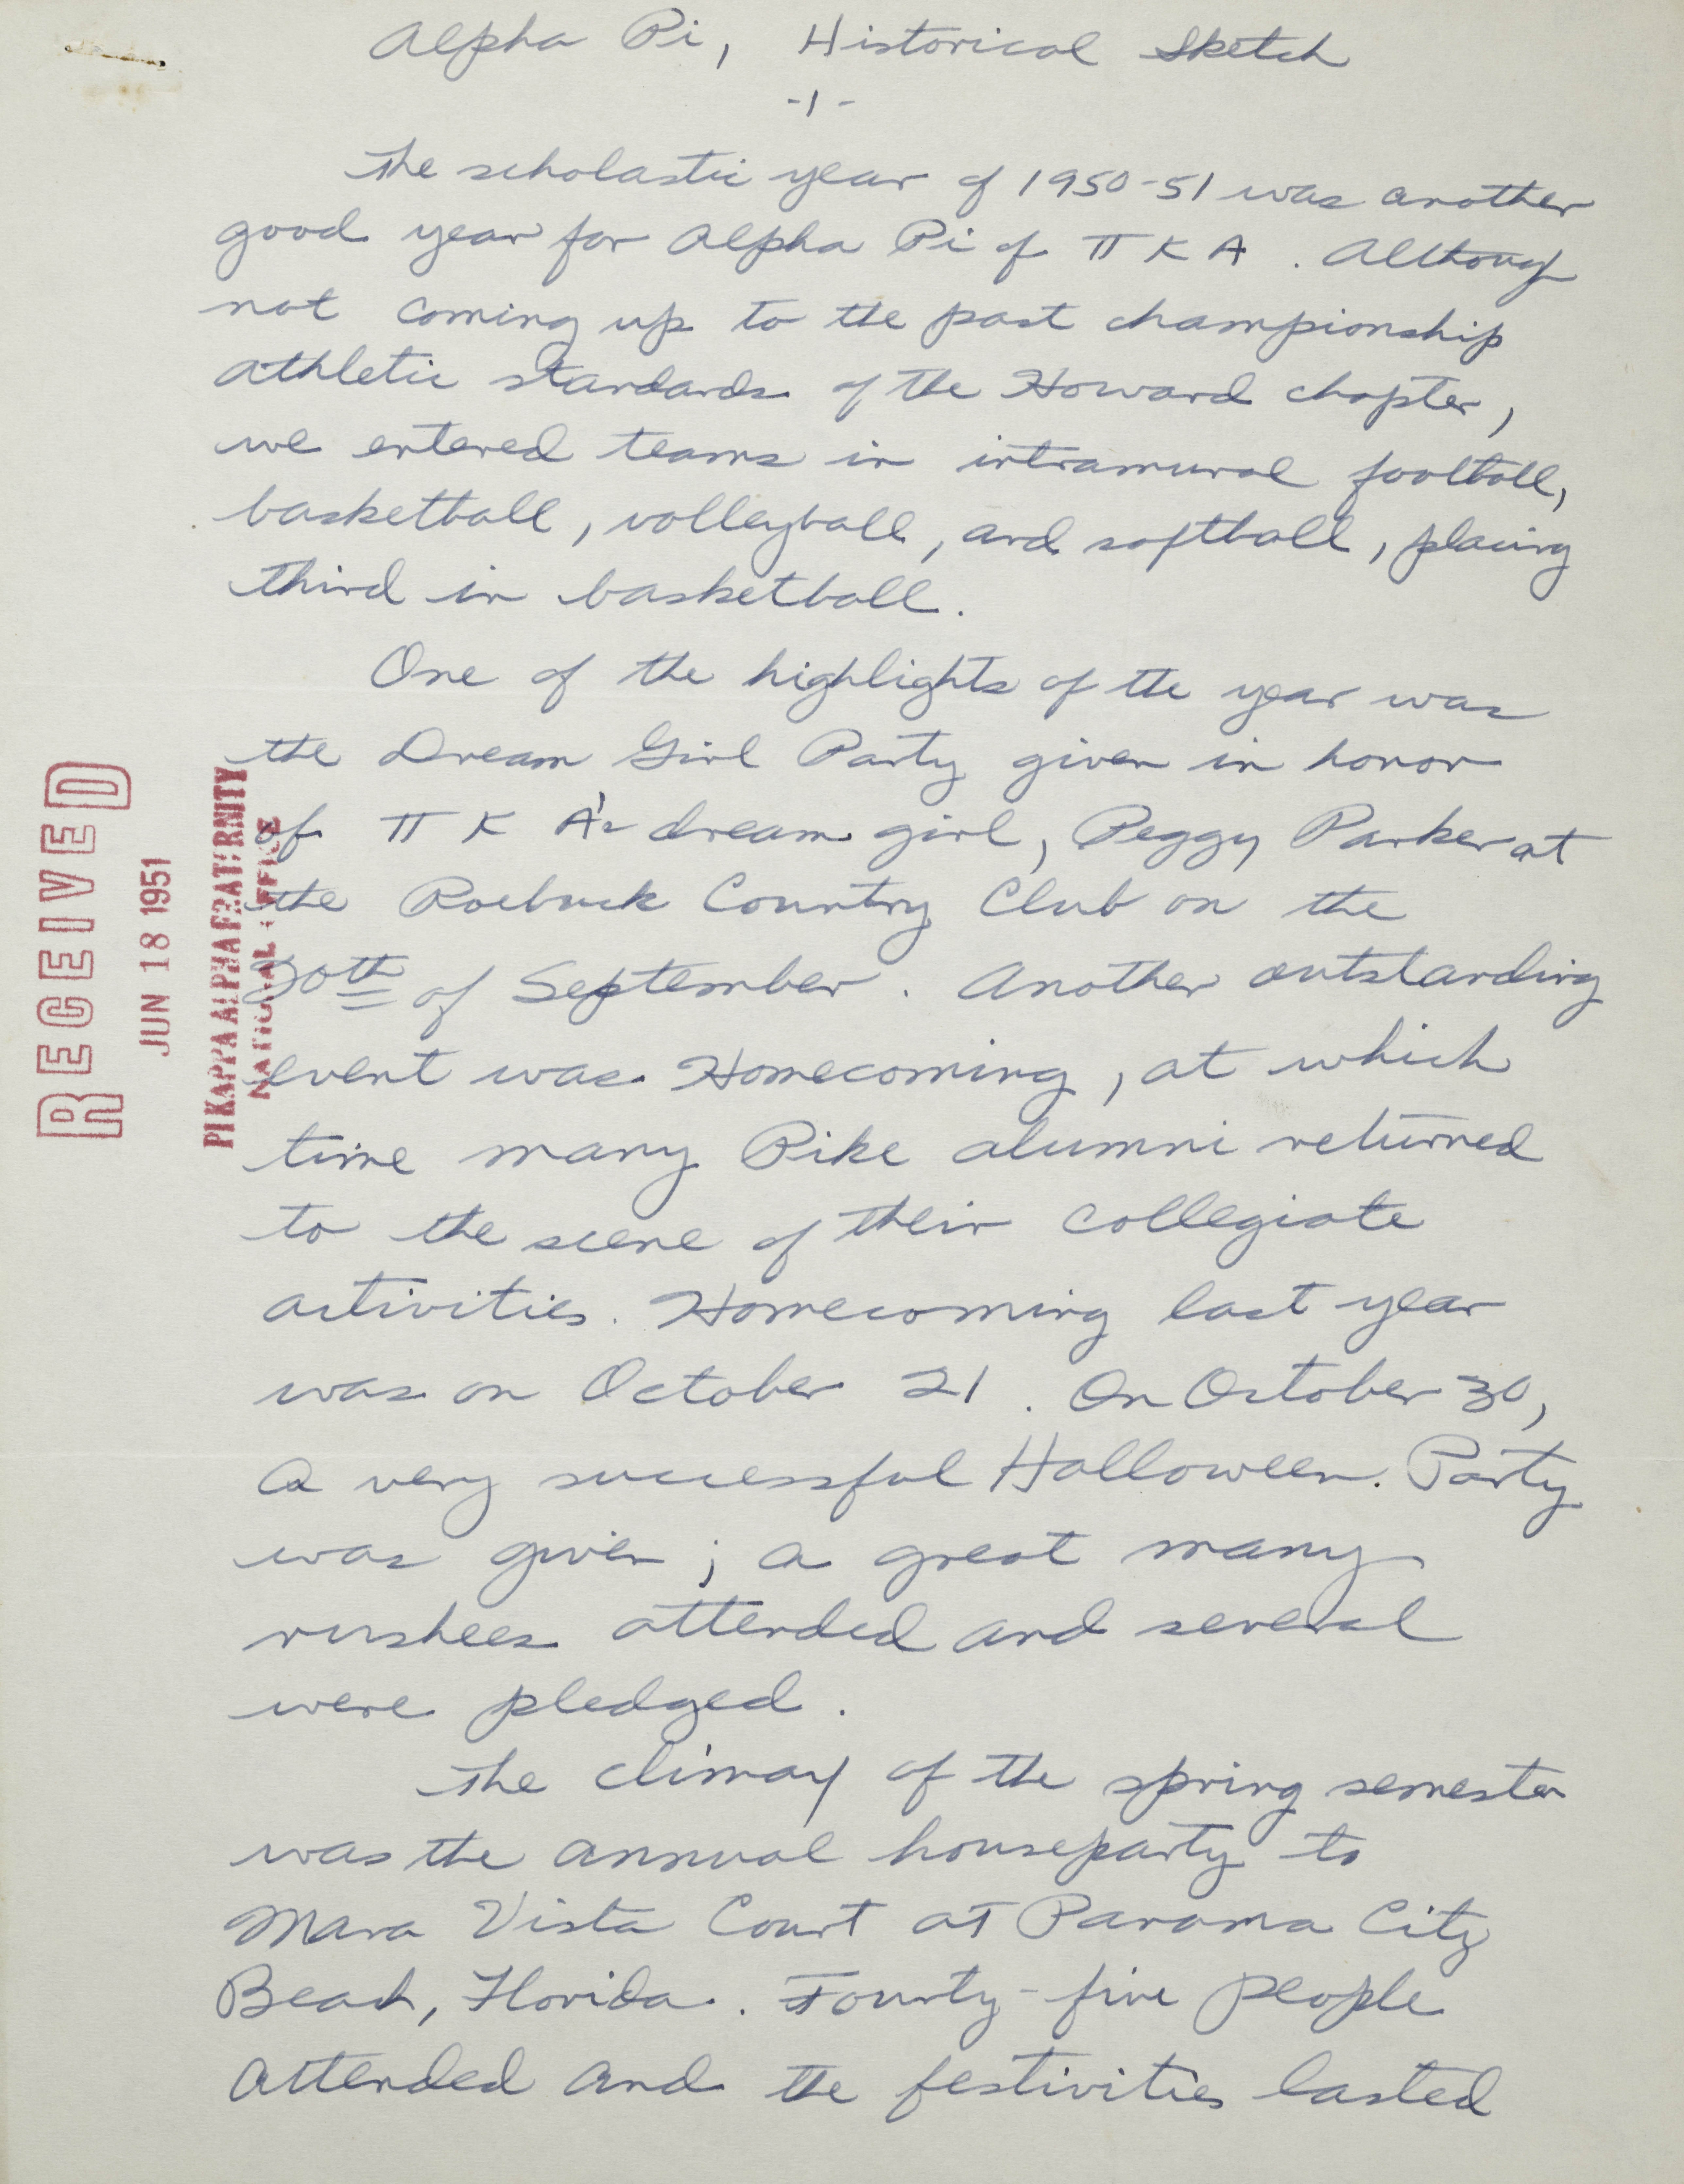 Alpha Pi, Historical Sketch
-1-
The scholastic year of 1950-51 was another
good year for Alpha Pi of Π K A. Although
not coming up to the past championship
athletic standards of the Howard chapter,
we entered teams in intramural football,
basketball, volleyball, and softball, placing
third in basketball.
One of the highlights of the year was
the Dream Girl Party given in honor
of Π K A's dream girl, Peggy Parker at
the Roebuck Country Club on the
30th of September. Another outstanding
event was Homecoming, at which
time many Pike alumni returned
to the scene of their collegiate
activities. Homecoming last year
was on October 21. On October 30,
a very successful Halloween Party
was given; a great many
rushees attended and several
were pledged.
The climax of the spring semester
was the annual houseparty to
Mara Vista Court at Panama City
Beach, Florida. Fourty-five people
attended and the festivities lasted
RECEIVED
JUN 18 1951
PI KAPPA ALPHA FRATERNITY
NATIONAL OFFICE